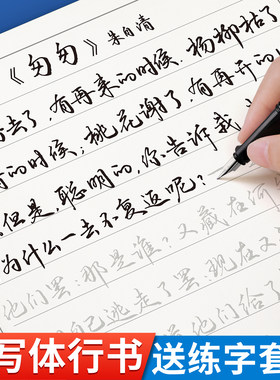 《匆匆》 朱自清
去了，有再来的时候。杨柳枯了
的时候；桃花谢了，有再开的
但是，聪明的，你告诉我
为什么一去不复返呢？
他们罢：那是谁？又藏在何
自己逃走了罢：现在
他们给了
写体行书 送练字套